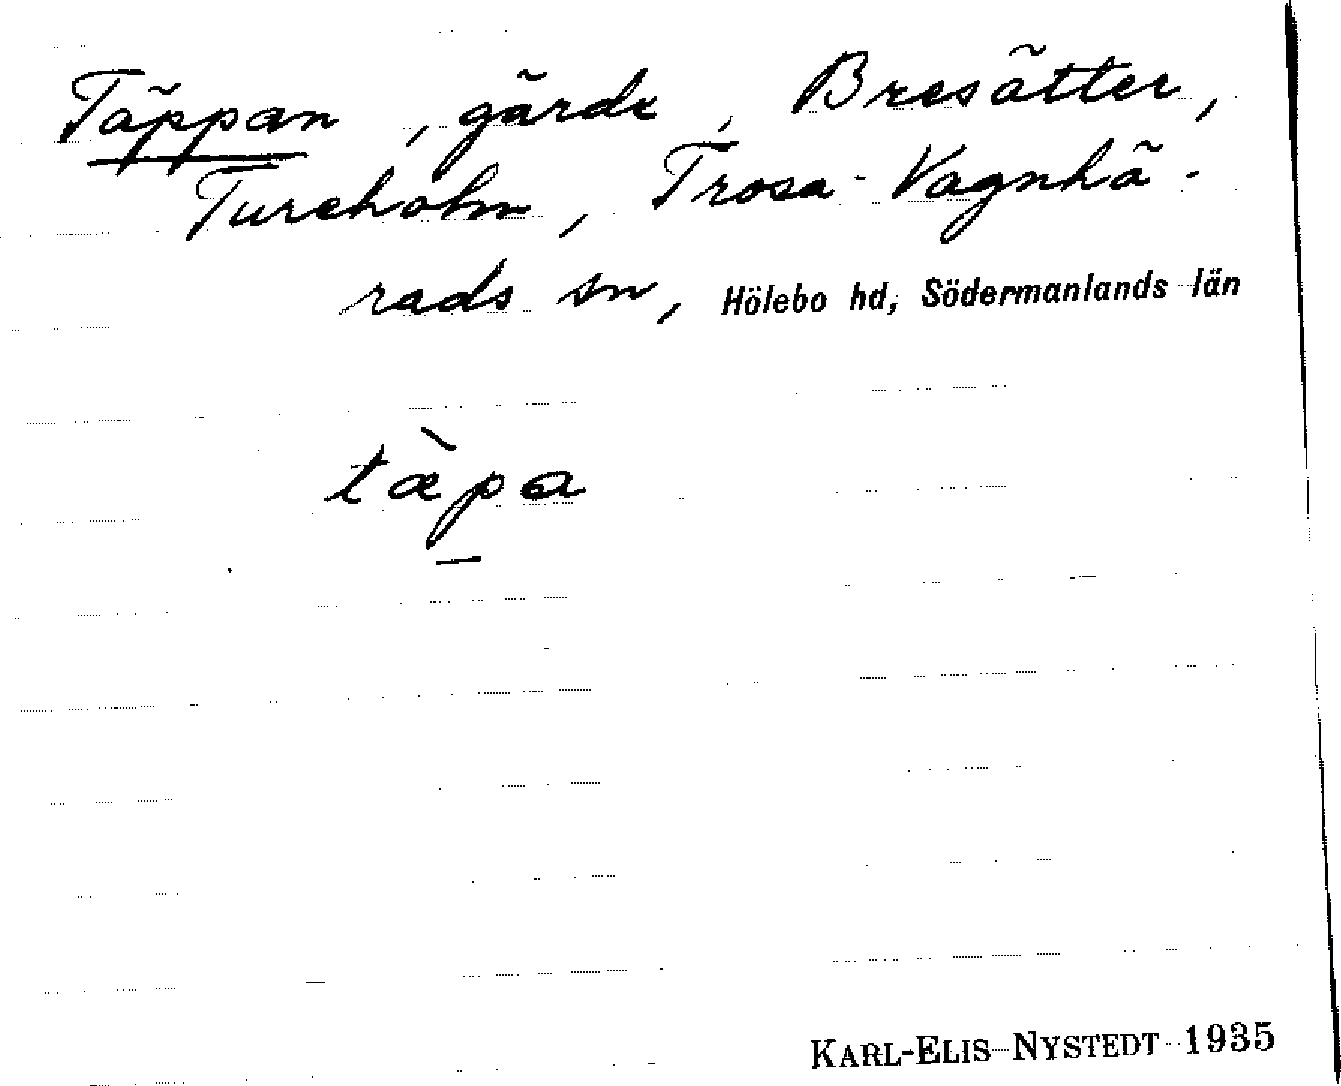 Täppan, gärde, Bresätter,
Tureholm, Trosa-Vagnhä-
rads sn, Hölebo hd, Södermanlands län
tæ̀pa
KARL-ELIS NYSTEDT 1935